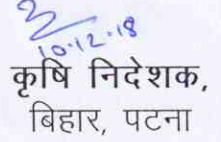 10.12.18
कृषि निदेशक,
बिहार, पटना